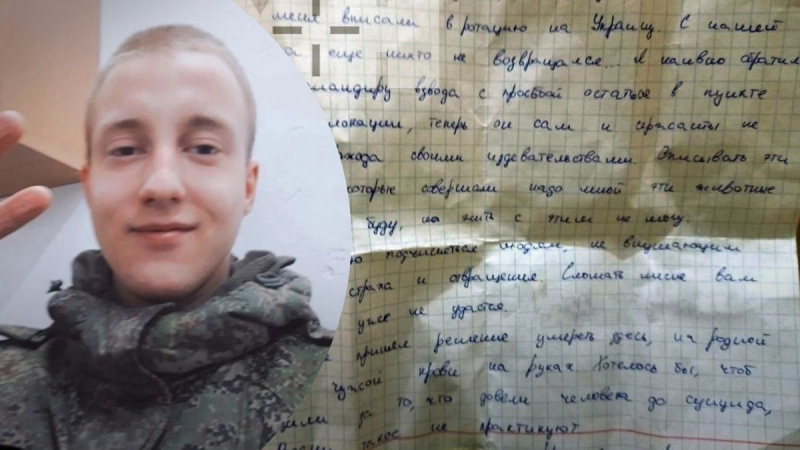 меня вписали в ротацию на Украину. С нашей
а еще никто не возвращался... Я наивно обратил
мандиру взвода с просьбой остаться в пункте
локации, теперь он сам и сержанты не
хода своими издевательствами. Описывать эти
которые совершали надо мной эти животные
буду, но жить с этим не могу.
ю подчиняться людям, не внушающим
страха и отвращения. Сломать меня вам
уже не удастся.
принял решение умереть здесь, на родной
чужой крови на руках. Хотелось бы, чтоб
за то, что довели человека до суицида,
такое не практикуют